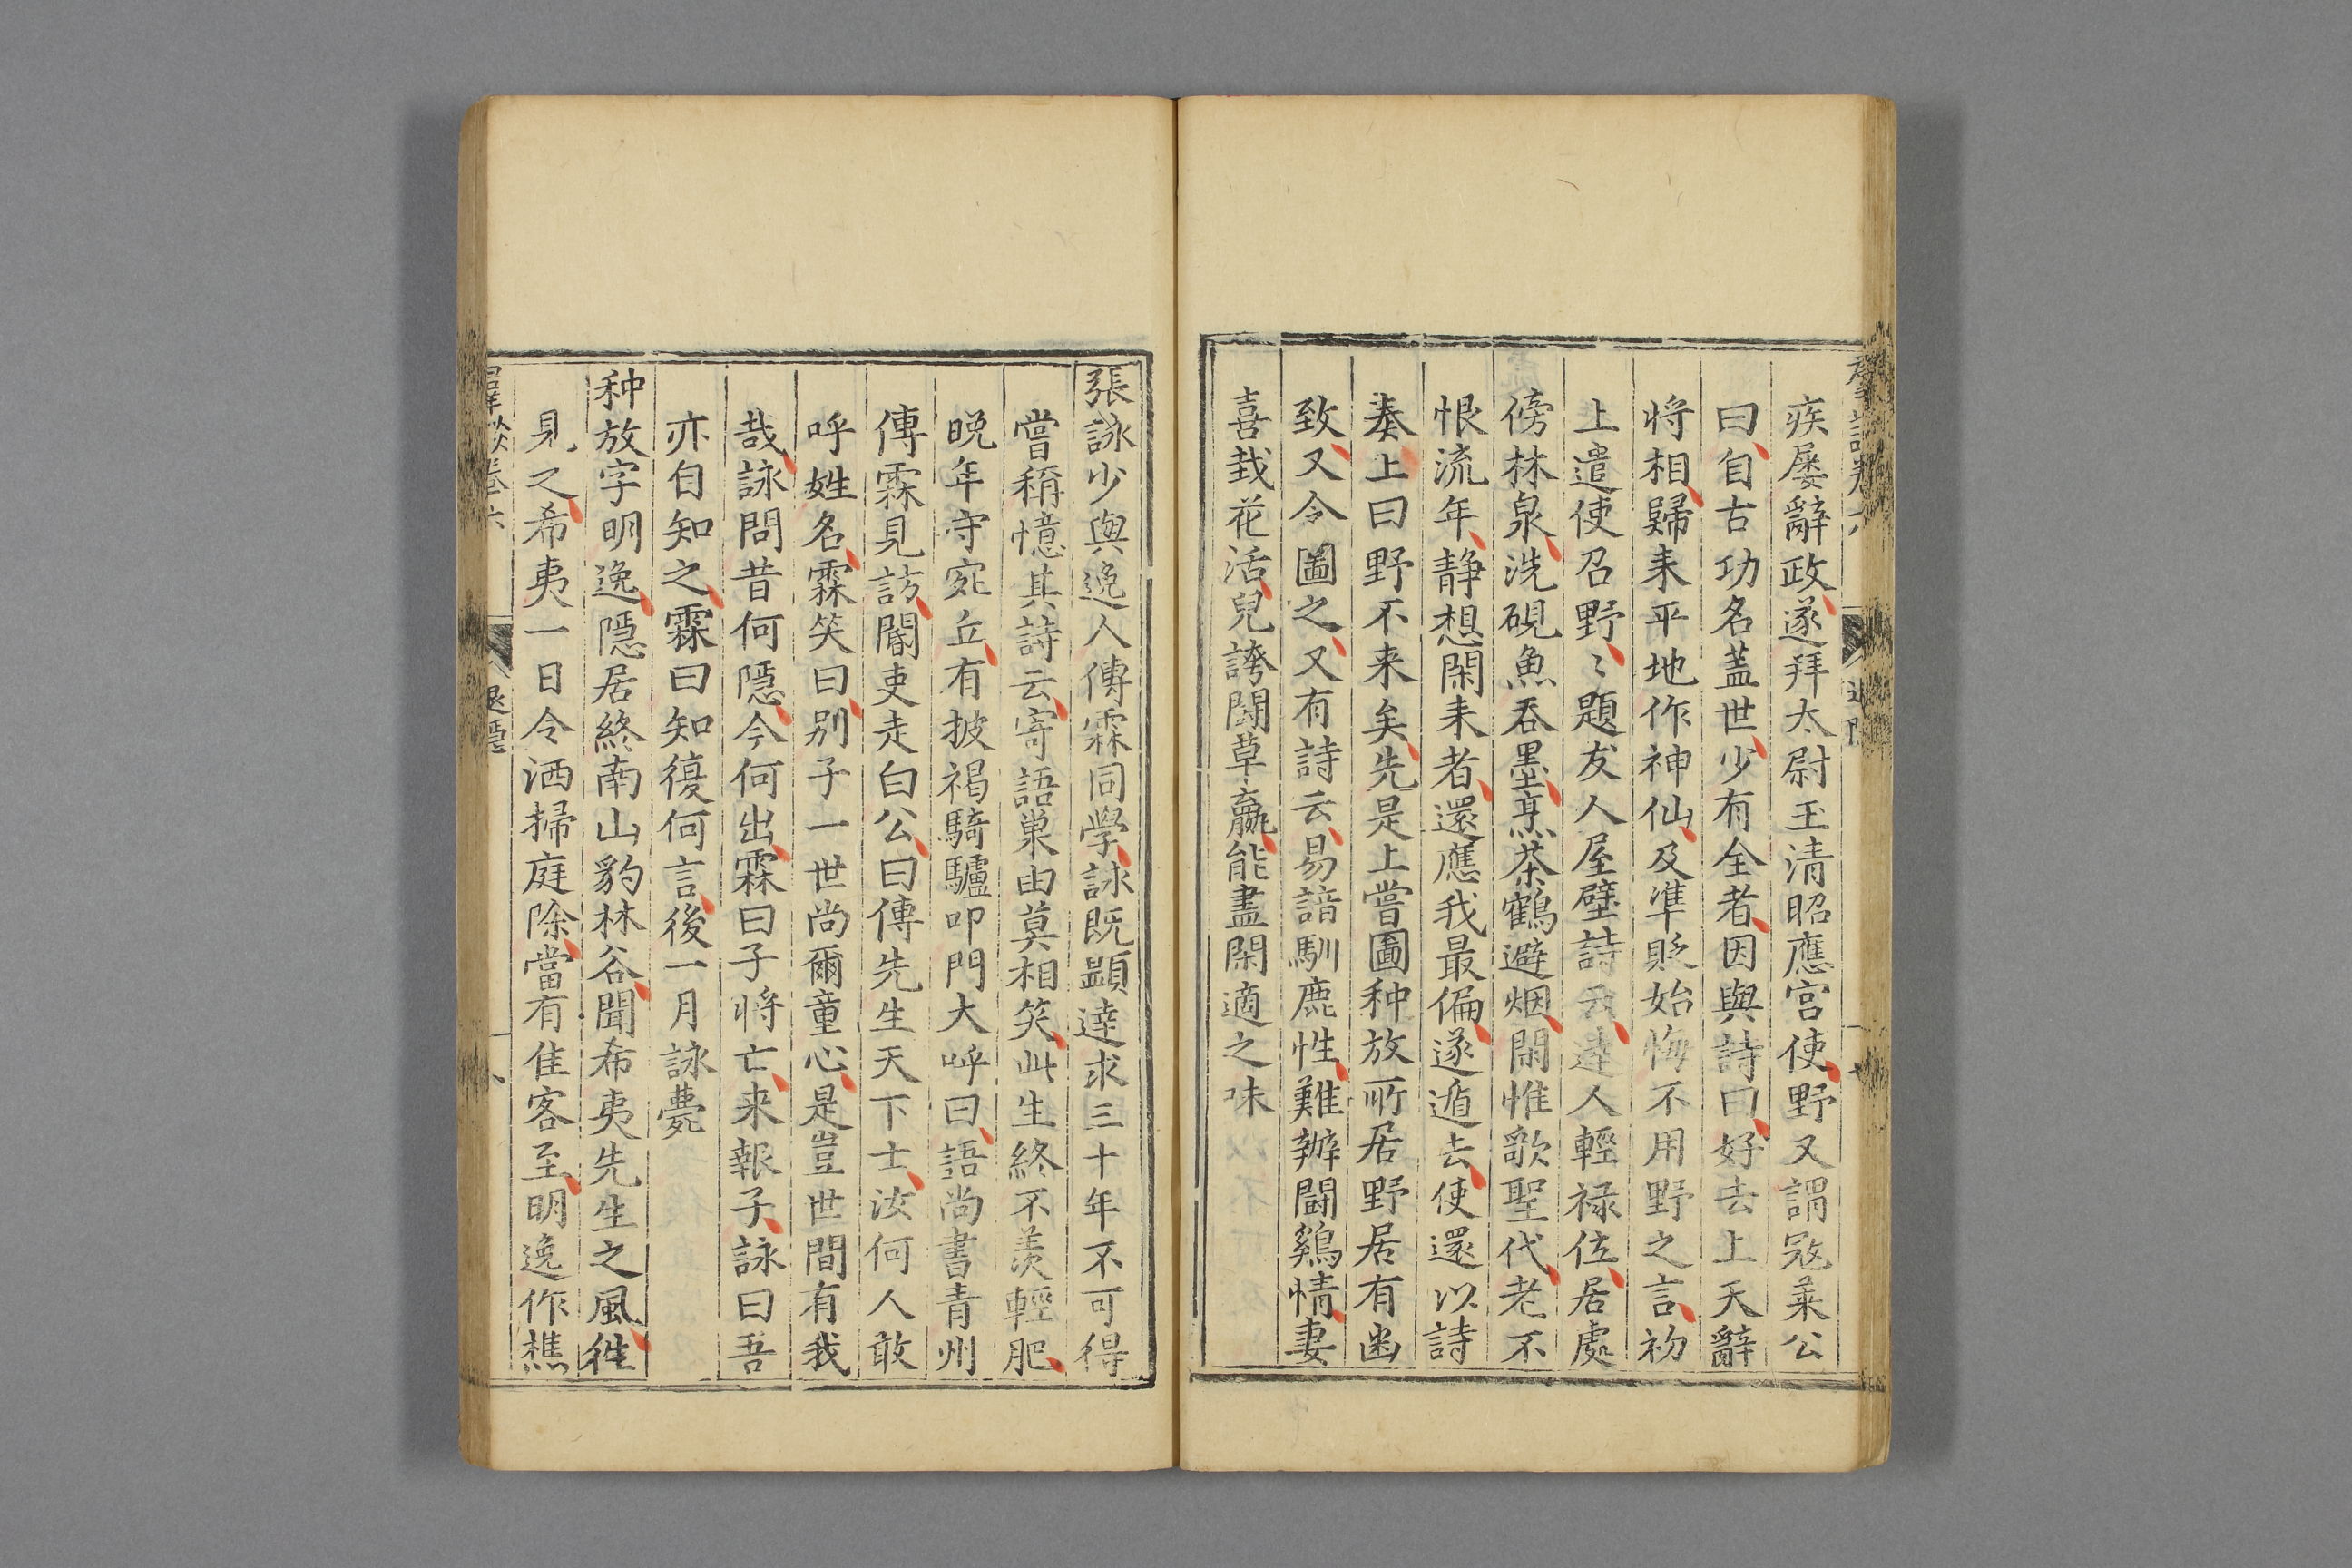 疾屢辭政遂拜太尉玉清昭應宮使野又謂冦萊公
曰自古功名蓋世少有全者因與詩曰好去上天辭
将相歸来平地作神仙及凖貶始悔不用野之言初
上遣使召野〻題友人屋壁詩云達人輕禄位居處
傍林泉洗硯魚吞墨烹茶鶴避烟閑惟歌聖代老不
恨流年静想閑来者還應我最偏遂遁去使還以詩
奏上曰野不来矣先是上嘗圖种放所居野居有幽
致又令圖之又有詩云易諳馴鹿性難辨鬪鷄情妻
喜栽花活兒誇鬪草贏能盡閑適之味
張詠少與逸人傅霖同學詠既顯達求三十年不可得
嘗稱憶其詩云寄語巢由莫相笑此生終不羨輕肥
晚年守宛丘有披褐騎驢叩門大呼曰語尚書青州
傳霖見訪閽吏走白公曰傳先生天下士汝何人敢
呼姓名霖笑曰别子一世尚爾童心是豈世間有我
哉詠問昔何隱今何出霖曰子将亡来報子詠曰吾
亦自知之霖曰知復何言後一月詠薨
种放字明逸隱居終南山豹林谷聞希夷先生之風徃
見之希夷一日令洒掃庭除當有佳客至明逸作樵